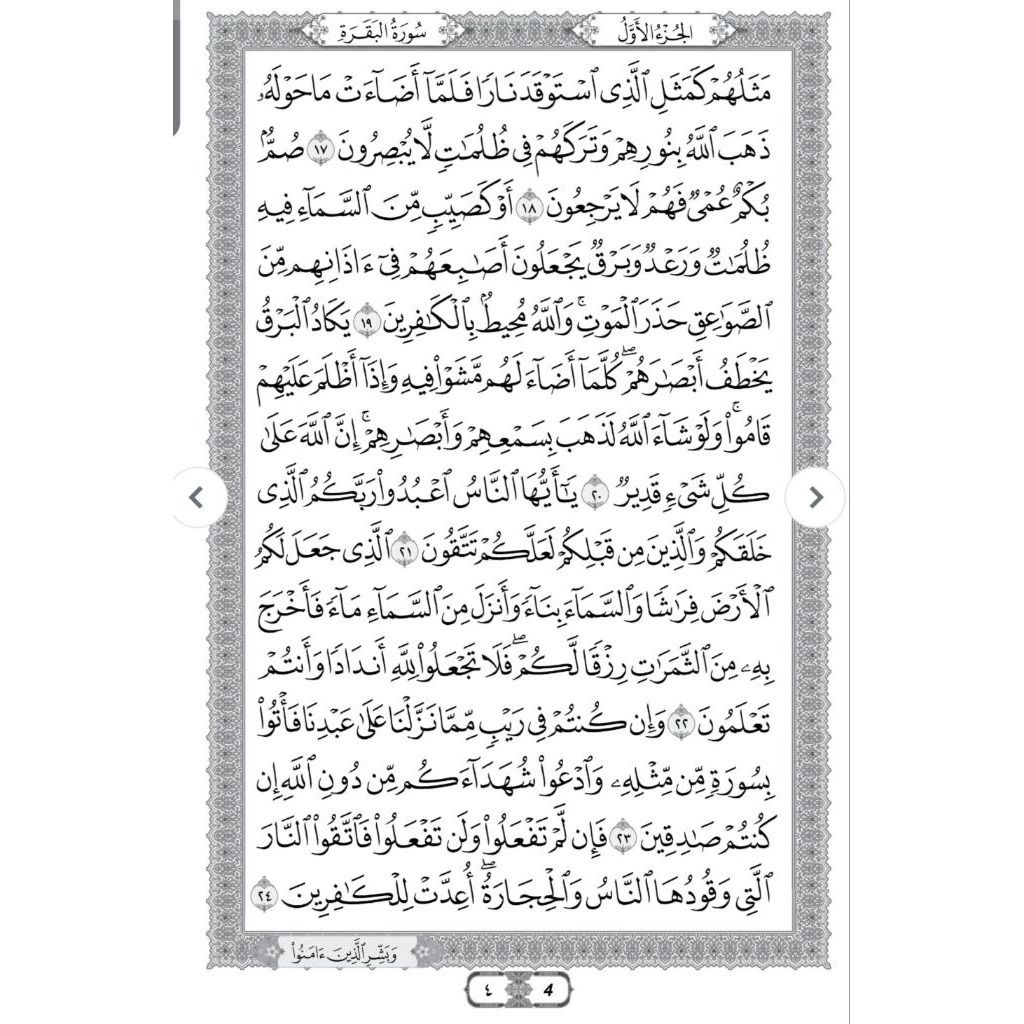 الجُزْءُ الأَوَّلُ
سُورَةُ البَقَرَةِ
مَثَلُهُمْ كَمَثَلِ ٱلَّذِى ٱسْتَوْقَدَ نَارًا فَلَمَّآ أَضَآءَتْ مَا حَوْلَهُۥ
ذَهَبَ ٱللَّهُ بِنُورِهِمْ وَتَرَكَهُمْ فِى ظُلُمَٰتٍ لَّا يُبْصِرُونَ ١٧ صُمٌّۢ
بُكْمٌ عُمْىٌ فَهُمْ لَا يَرْجِعُونَ ١٨ أَوْ كَصَيِّبٍ مِّنَ ٱلسَّمَآءِ فِيهِ
ظُلُمَٰتٌ وَرَعْدٌ وَبَرْقٌ يَجْعَلُونَ أَصَٰبِعَهُمْ فِىٓ ءَاذَانِهِم مِّنَ
ٱلصَّوَٰعِقِ حَذَرَ ٱلْمَوْتِ ۚ وَٱللَّهُ مُحِيطٌۢ بِٱلْكَٰفِرِينَ ١٩ يَكَادُ ٱلْبَرْقُ
يَخْطَفُ أَبْصَٰرَهُمْ ۖ كُلَّمَآ أَضَآءَ لَهُم مَّشَوْا۟ فِيهِ وَإِذَآ أَظْلَمَ عَلَيْهِمْ
قَامُوا۟ ۚ وَلَوْ شَآءَ ٱللَّهُ لَذَهَبَ بِسَمْعِهِمْ وَأَبْصَٰرِهِمْ ۚ إِنَّ ٱللَّهَ عَلَىٰ
كُلِّ شَىْءٍ قَدِيرٌ ٢٠ يَٰٓأَيُّهَا ٱلنَّاسُ ٱعْبُدُوا۟ رَبَّكُمُ ٱلَّذِى
خَلَقَكُمْ وَٱلَّذِينَ مِن قَبْلِكُمْ لَعَلَّكُمْ تَتَّقُونَ ٢١ ٱلَّذِى جَعَلَ لَكُمُ
ٱلْأَرْضَ فِرَٰشًا وَٱلسَّمَآءَ بِنَآءً وَأَنزَلَ مِنَ ٱلسَّمَآءِ مَآءً فَأَخْرَجَ
بِهِۦ مِنَ ٱلثَّمَرَٰتِ رِزْقًا لَّكُمْ ۖ فَلَا تَجْعَلُوا۟ لِلَّهِ أَندَادًا وَأَنتُمْ
تَعْلَمُونَ ٢٢ وَإِن كُنتُمْ فِى رَيْبٍ مِّمَّا نَزَّلْنَا عَلَىٰ عَبْدِنَا فَأْتُوا۟
بِسُورَةٍ مِّن مِّثْلِهِۦ وَٱدْعُوا۟ شُهَدَآءَكُم مِّن دُونِ ٱللَّهِ إِن
كُنتُمْ صَٰدِقِينَ ٢٣ فَإِن لَّمْ تَفْعَلُوا۟ وَلَن تَفْعَلُوا۟ فَٱتَّقُوا۟ ٱلنَّارَ
ٱلَّتِى وَقُودُهَا ٱلنَّاسُ وَٱلْحِجَارَةُ ۖ أُعِدَّتْ لِلْكَٰفِرِينَ ٢٤
وَبَشِّرِ ٱلَّذِينَ ءَامَنُوا۟
4 ٤